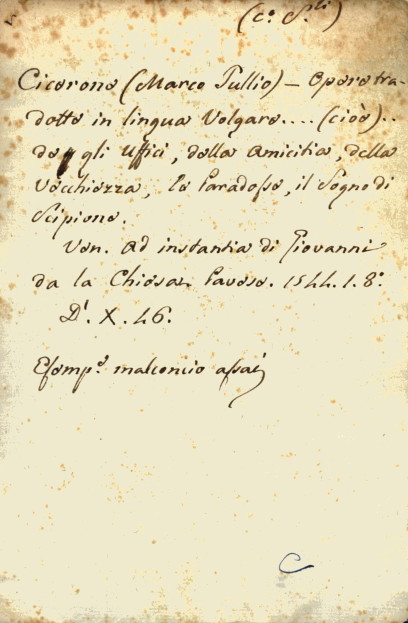 (c.° S.ti)
Cicerone (Marco Tullio) — Opere tra-
dotte in lingua Volgare.... (cioè)..
de gli Uffici, della Amicitia, della
Vecchiezza, le Paradosse, il Sogno di
Scipione.
Ven. Ad instantia di Giovanni
da la Chiesa. Pavese. 1544. 1. 8.°
D'. X. 46.
Esemp.° malconcio assai
C